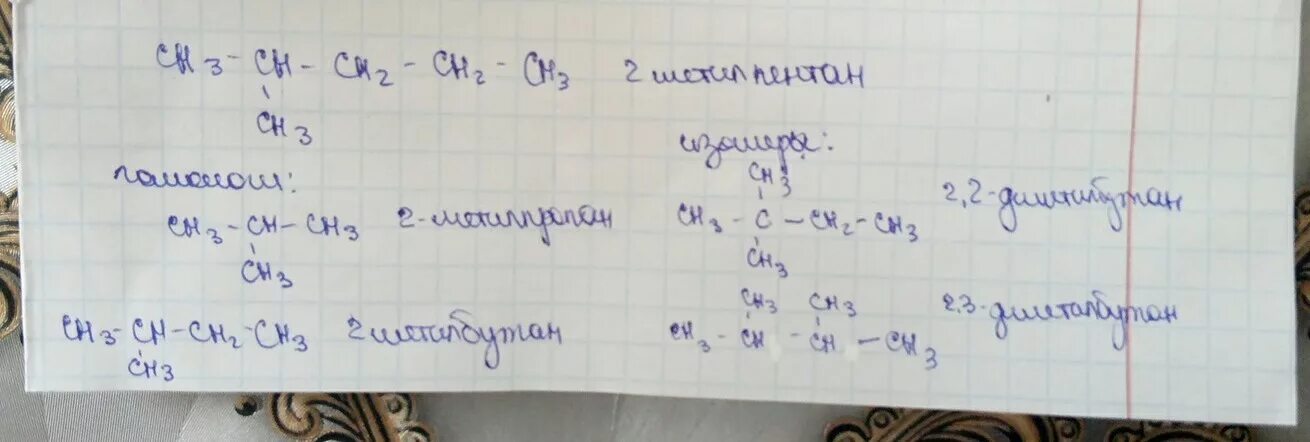 CH3 - CH - CH2 - CH2 - CH3 2 метилпентан
CH3
гомологи:
CH3 - CH - CH3 2-метилпропан
CH3
CH3 - CH - CH2 - CH3 2 метилбутан
CH3
изомеры:
CH3
CH3 - C - CH2 - CH3 2,2-диметилбутан
CH3
CH3 CH3
CH3 - CH - CH - CH3 2.3-диметилбутан